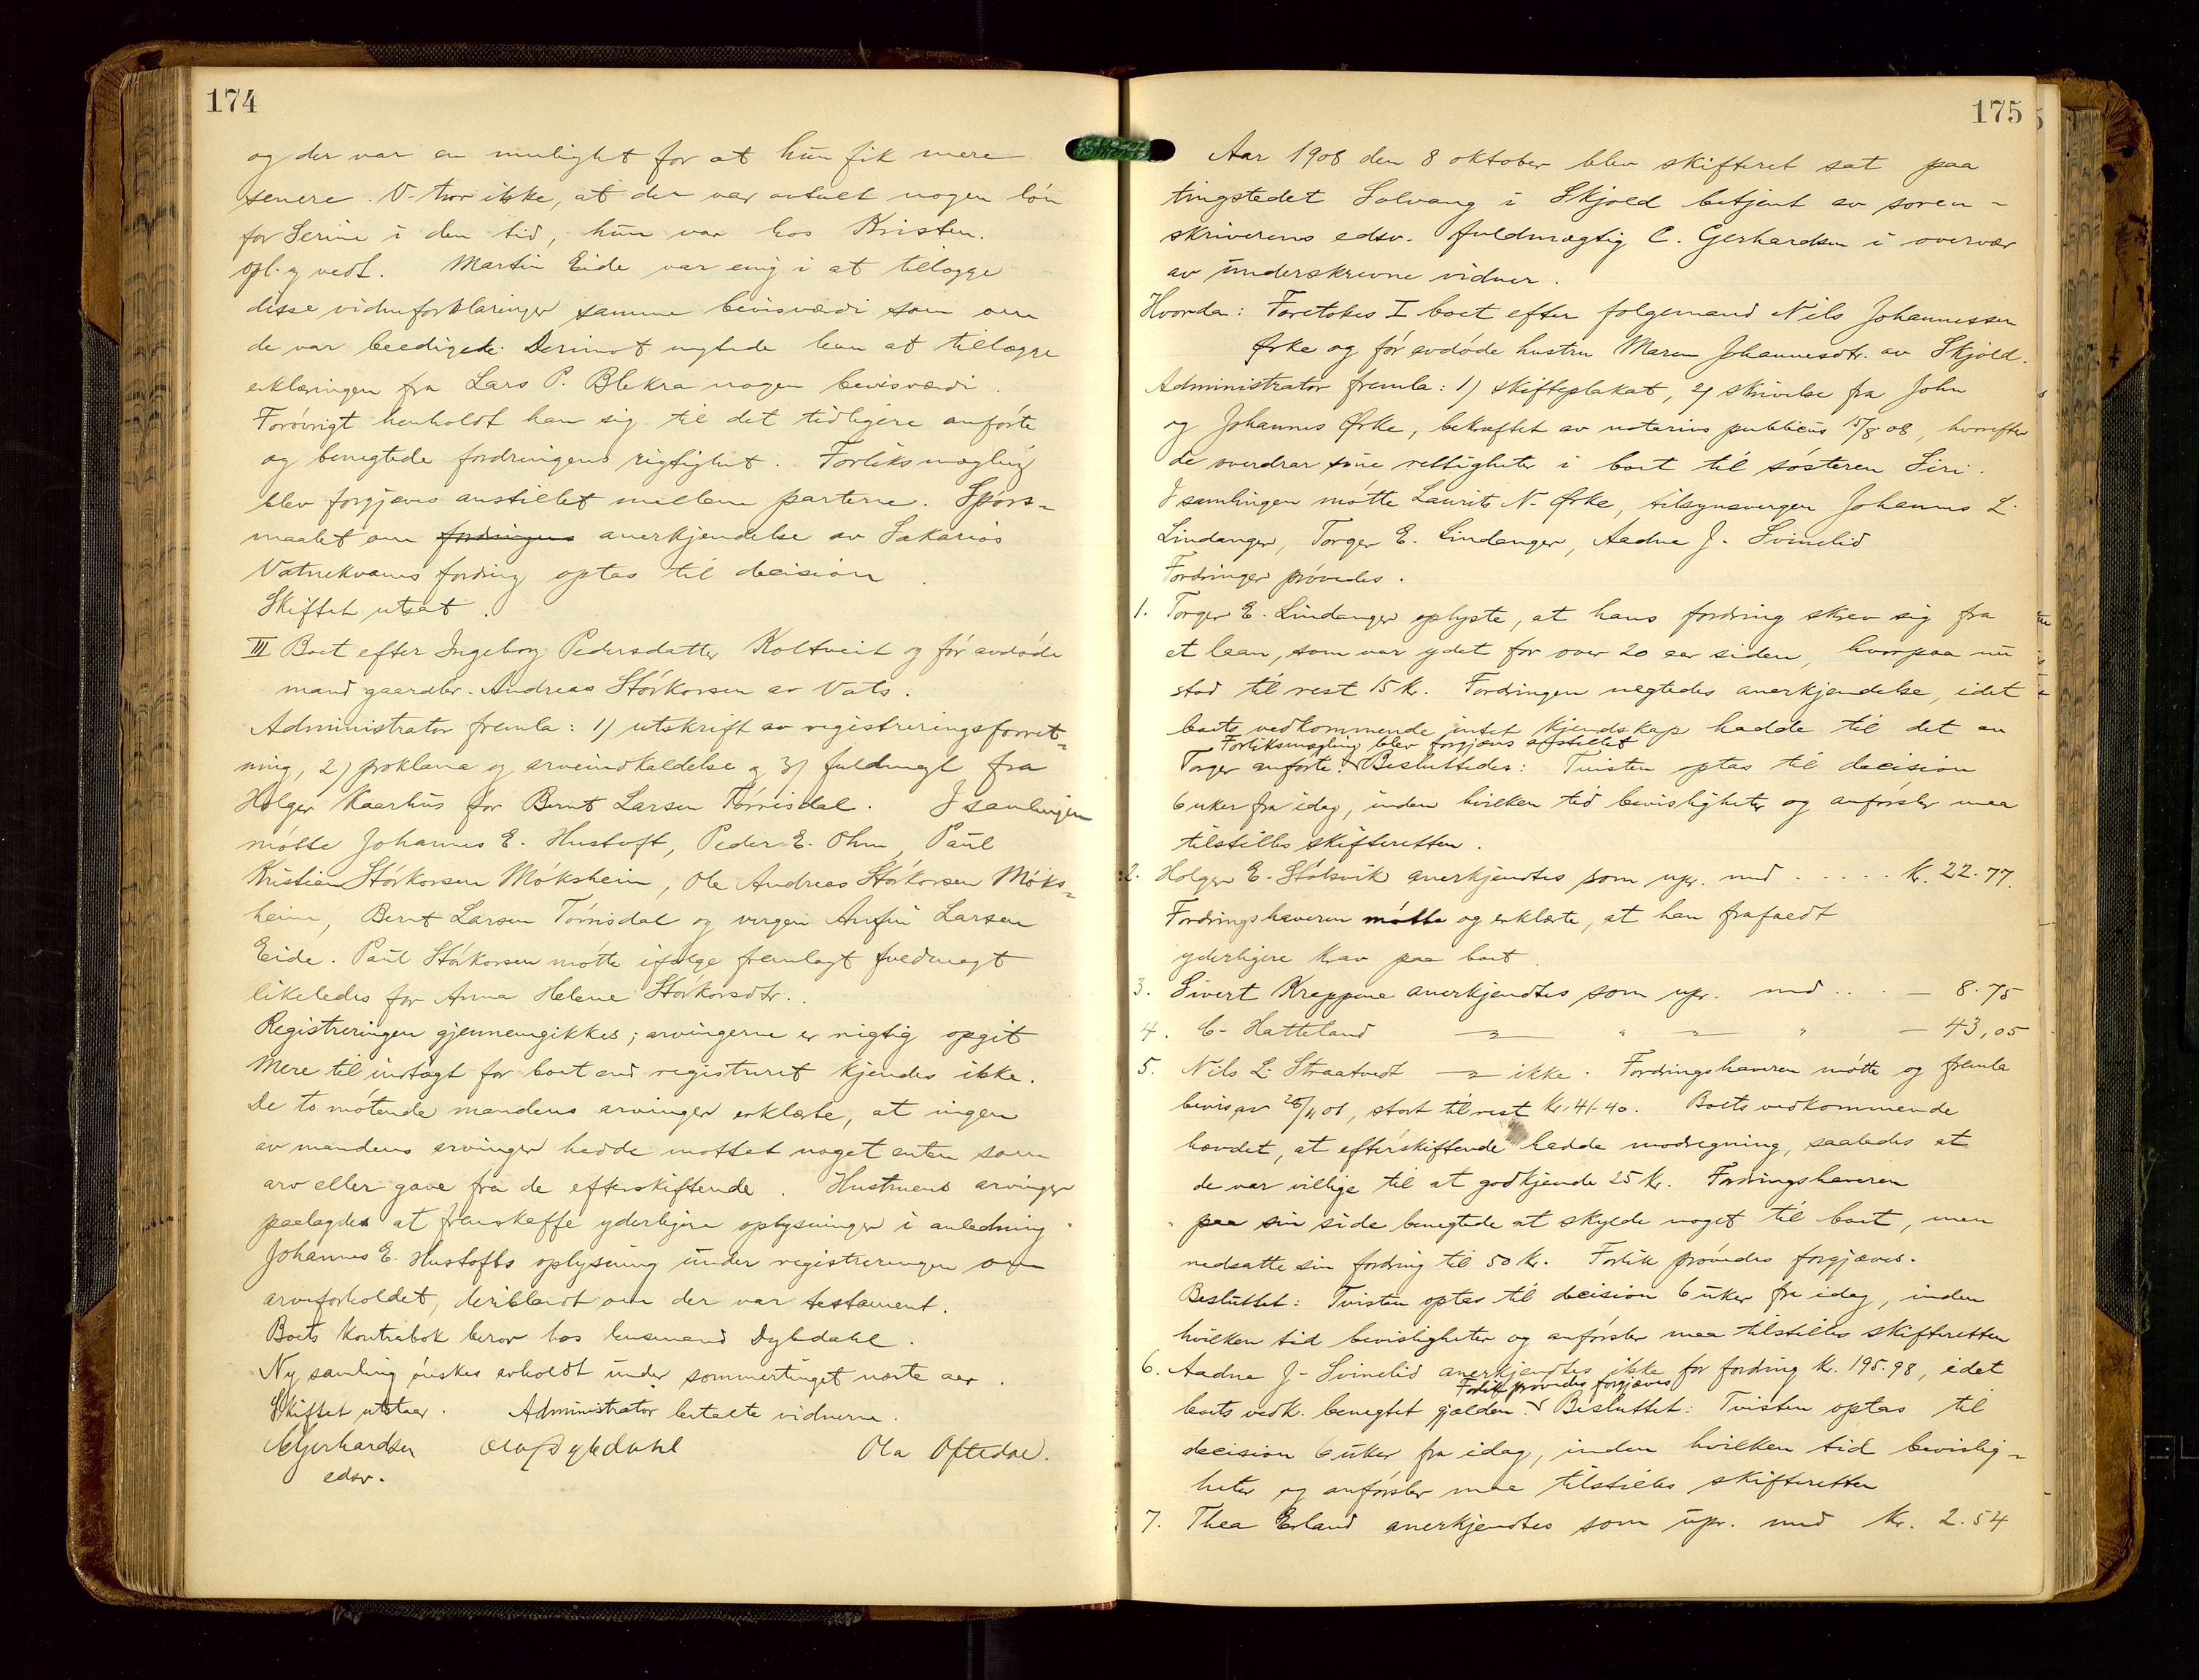 174
og der var en mulighet for at hun fik mere
senere. V. tror ikke, at der var avtalt nogen løn
for Serine i den tid, hun var hos Kristen.
Opl. og vedt. Martin Eide var enig i at tillægge
disse vidneforklaringer samme bevisværdi som om
de var beedigede. Derimot negtede han at tillægge
erklæringen fra Lars P. Blekra nogen bevisværdi.
Forøvrigt henholdt han sig til det tidligere anførte
og benegtede fordringens rigtighet. Forliksmægling
blev forgjæves anstillet mellem parterne. Spørs-
maalet om fordringens anerkjendelse av Sakarias
Vatnekvams fordring optas til decision.
Skiftet utsat.
III Boet efter Ingeborg Pedersdatter Koltveit og før avdøde
mand gaardbr. Andreas Størkorsen av Vats.
Administrator fremla: 1) utskrift av registreringsforret-
ning, 2) proklama og arveindkaldelse og 3) fuldmagt fra
Holger Kaarhus for Bernt Larsen Tørrisdal. I samlingen
møtte Johannes E. Hustoft, Peder E. Ohm, Paul
Kristian Størkorsen Møksheim, Ole Andreas Størkorsen Møks-
heim, Bernt Larsen Tørrisdal og vergen Anfin Larsen
Eide. Paul Størkorsen møtte ifølge fremlagt fuldmagt
likeledes for Anna Helene Størkorsdtr..
Registreringen gjennemgikkes; arvingerne er rigtig opgit
Mere til indtægt for boet end registreret kjendes ikke.
De to møtende mandens arvinger erklærte, at ingen
av mandens arvinger hadde mottat noget enten som
arv eller gave fra de efterskiftende. Hustruens arvinger
paalagdes at fremskaffe yderligere oplysninger i anledning
Johannes E. Hustofts oplysning under registreringen om
arveforholdet, deriblandt om der var testament.
Boets kontrabok beror hos lensmand Dybdahl.
Ny samling ønskes avholdt under sommertinget næste aar.
Skiftet utstaar. Administrator betalte vidnerne.
C Gerhardsen Olaf Dybdahl Ola Oftedal.
edsv.
175
Aar 1908 den 8 oktober blev skifteret sat paa
tingstedet Solvang i Skjold betjent av soren-
skriverens edsv. fuldmægtig C. Gerhardsen i overvær
av underskrevne vidner.
Hvorda: Foretokes I boet efter følgemand Nils Johannessen
Ørke og før avdøde hustru Maren Johannesdtr. av Skjold.
Administrator fremla: 1) skifteplakat, 2) skrivelse fra John
og Johannes Ørke, bekræftet av notarius publicus 15/8 08, hvorefter
de overdrar sine rettigheter i boet til søsteren Siri.
I samlingen møtte Laurits N. Ørke, tilsynsvergen Johannes L.
Lindanger, Torger E. Lindanger, Aadne J. Svinelid
Fordringer prøvedes.
1. Torger E. Lindanger oplyste, at hans fordring skrev sig fra
et laan, som var ydet for over 20 aar siden, hvorpaa nu
stod til rest 15 kr. Fordringen negtedes anerkjendelse, idet
boets vedkommende intet kjendskap hadde til det av
Forliksmægling blev forgjæves anstillet
Torger anførte. Besluttedes: Tvisten optas til decision
6 uker fra idag, inden hvilken tid bevisligheter og anførsler maa
tilstilles skifteretten.
2. Holger E. Stølsvik anerkjendtes som upr. med . . . . . Kr. 22.77.
Fordringshaveren møtte og erklærte, at han frafaldt
yderligere krav paa boet.
3. Sivert Kreppene anerkjendtes som upr. med . . . — 8.75
4. C. Hatteland —"— " —"— " — 43,05
5. Nils L. Straatveit —"— ikke. Fordringshaveren møtte og fremla
bevis av 28/11 01, stort til rest kr. 41.40. Boets vedkommende
hævdet, at efterskiftende hadde modregning, saaledes at
de var villige til at godkjende 25 kr. Fordringshaveren
paa sin side benegtede at skylde noget til boet, men
nedsatte sin fordring til 50 kr. Forlik prøvedes forgjæves.
Besluttet: Tvisten optas til decision 6 uker fra idag, inden
hvilken tid bevisligheter og anførsler maa tilstilles skifteretten
6. Aadne J. Svinelid anerkjendtes ikke for fordring kr. 195.98, idet
Forlik prøvedes forgjæves
boets vedk. benegtet gjælden. Besluttet: Tvisten optas til
decision 6 uker fra idag, inden hvilken tid bevislig-
heter og anførsler maa tilstilles skifteretten
7. Thea Erland anerkjendtes som upr. med Kr. 2.54